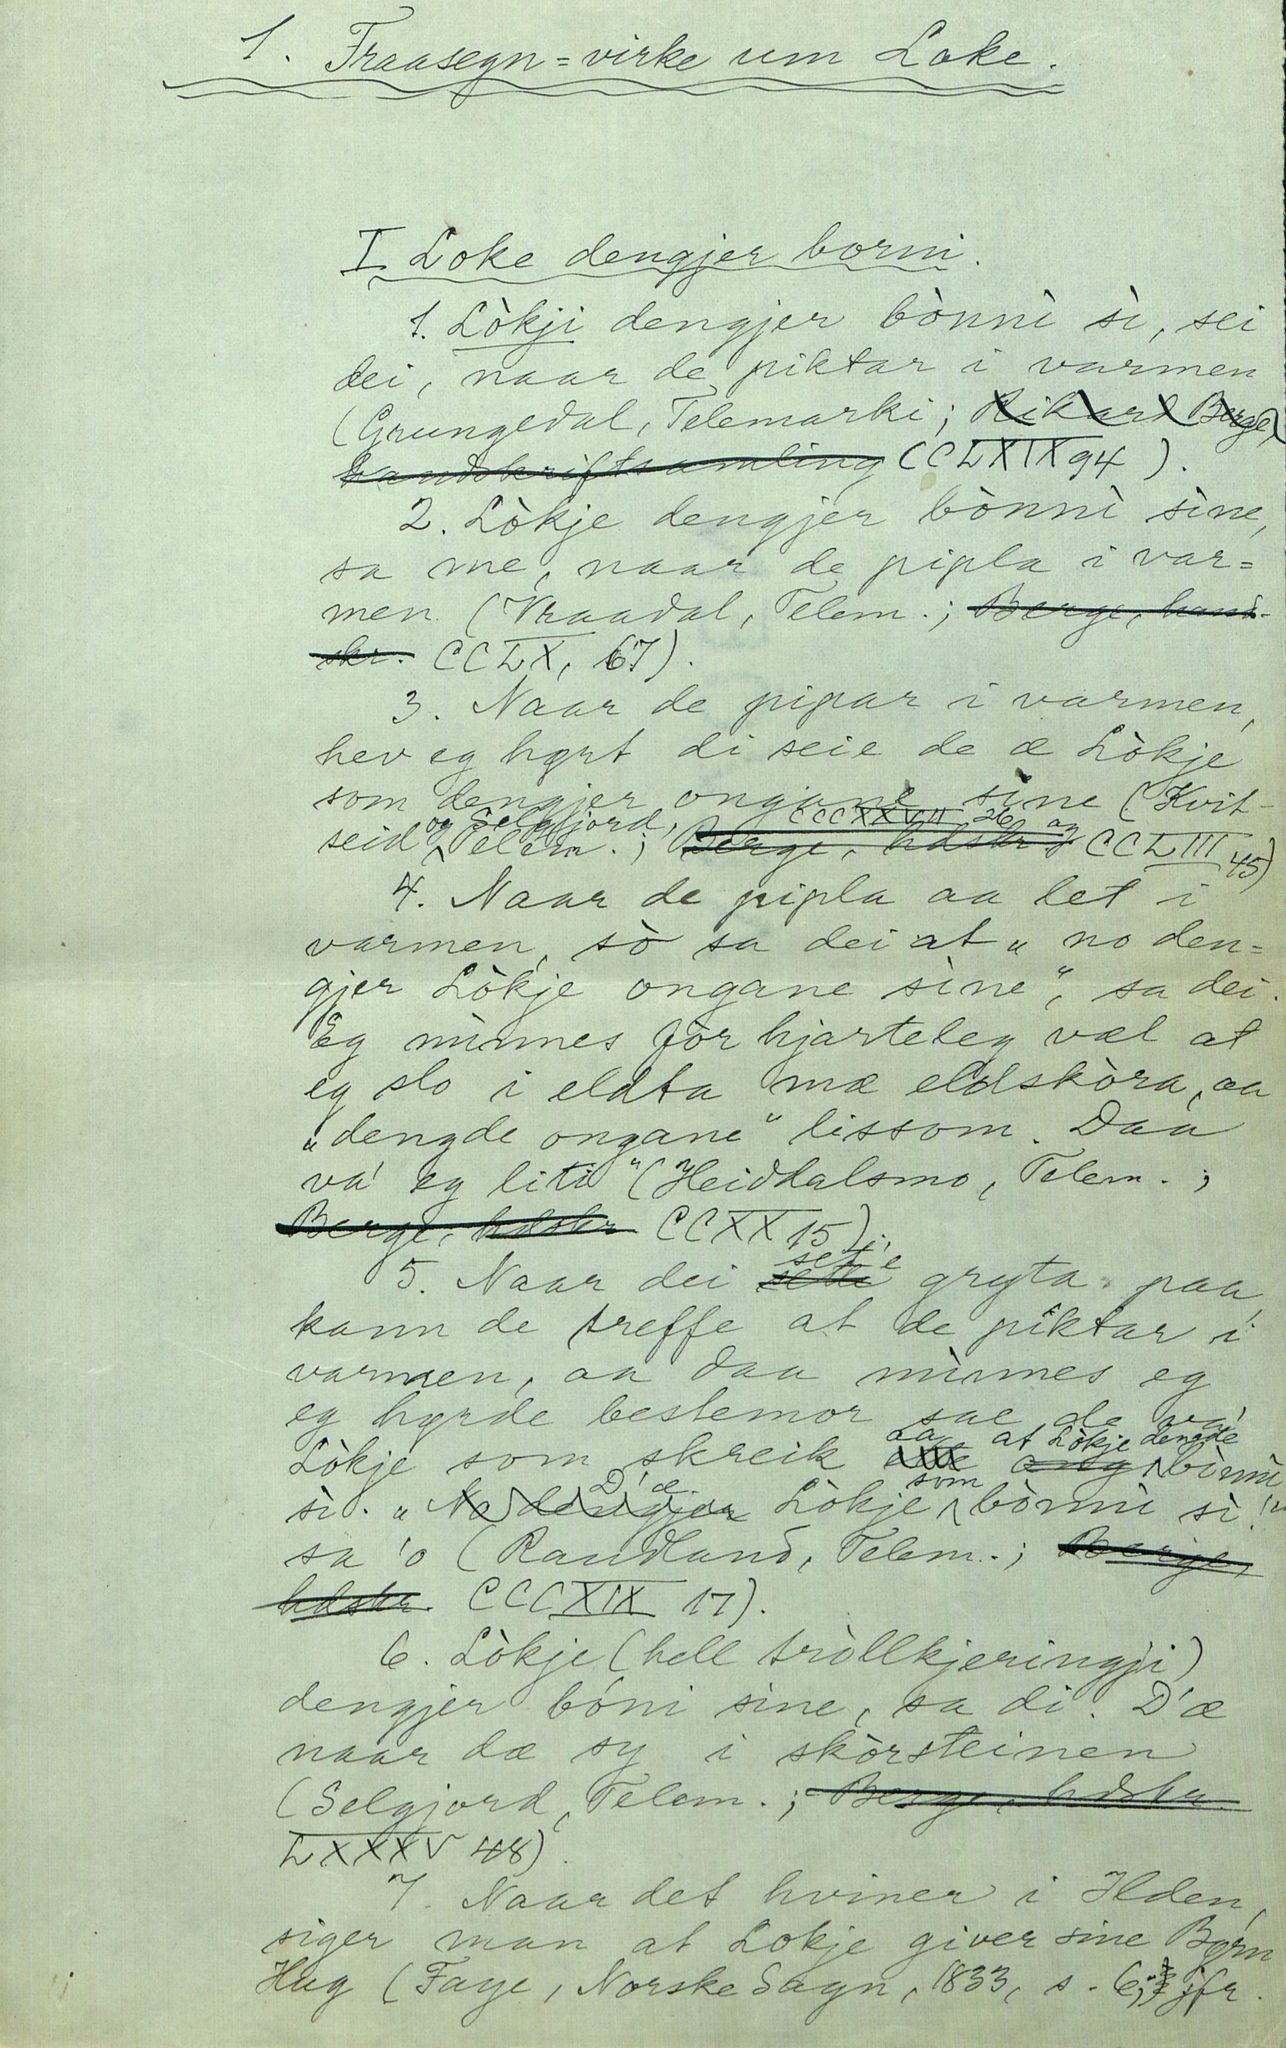 1. Fraasegn=virke um Loke.
I. Loke dengjer borni.
1. Lòkji dengjer bònnì sì, sei
dei, naar de piktar i varmen
(Grungedal, Telemarki; Rikard Berge,
handskriftsamling CCLXIX 94).
2. Lòkje dengjer bònnì sìne,
sa me, naar de pipla i var=
men (Vraadal, Telem.; Berge, hand-
skr. CCLX, 67).
3. Naar de pipar i varmen,
hev eg høyrt di seie de æ Lòkje
som dengjer ongane sìne (Kvit-
og Seljord, CCCXXVII 26 og
seid Telem.; Berge, hdskr CCLIII 45)
4. Naar de pipla aa let i
varmen, sò sa dei at „no den=
gjer Lòkje ongane sìne“, sa dei.
Eg mìnnes fòr hjarteleg væl at
eg slo i eldta mæ eldskòra, aa
„dengde ongane“ lissom. Daa
va' eg liti“ (Heiddalsmo, Telem.;
Berge, hdskr CCXX 15).
5. Naar dei sette gryta paa,
kann de treffe at de piktar i
varmen, aa daa mìnnes eg
eg hyrde bestemor sae de va'
Lòkje som skreik aa at Lòkje dengde bònnì
sì. „D'æ Lòkje som bònnì sì!“
sa 'o (Raudland, Telem.; Berge,
hdskr. CCCXIX 17).
6. Lòkje (hell tròllkjeringji)
dengjer bóni sine, sa di. D'æ
naar dæ sy i skòrsteinen
(Selgjord, Telem.; Berge, hdskr
LXXXV 48).
7. Naar det hviner i Ilden,
siger man at Lokje giver sine Børn
Hug (Faye, Norske Sagn, 1833, s. 6; jfr.